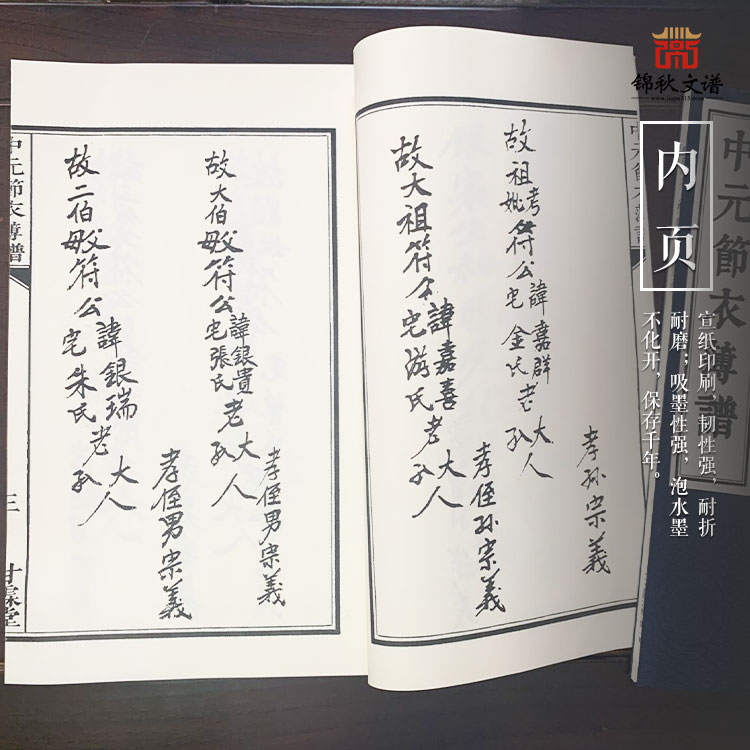 锦秋文谱
www.jinpu315.com
内页
宣纸印刷 韧性强，耐折
耐磨；吸墨性强，泡水墨
不化开，保存千年。
中元節衣薄譜
孝孫宗義
故祖考妣符公諱嘉群宅金氏老大孺人
孝侄孫宗義
故大祖符公諱嘉喜宅游氏老大孺人
中元節衣薄譜
孝侄男宗義
故大伯父母符公諱銀貴宅張氏老大孺人
孝侄男宗義
故二伯父母符公諱銀瑞宅朱氏老大孺人
中元節衣薄譜
三